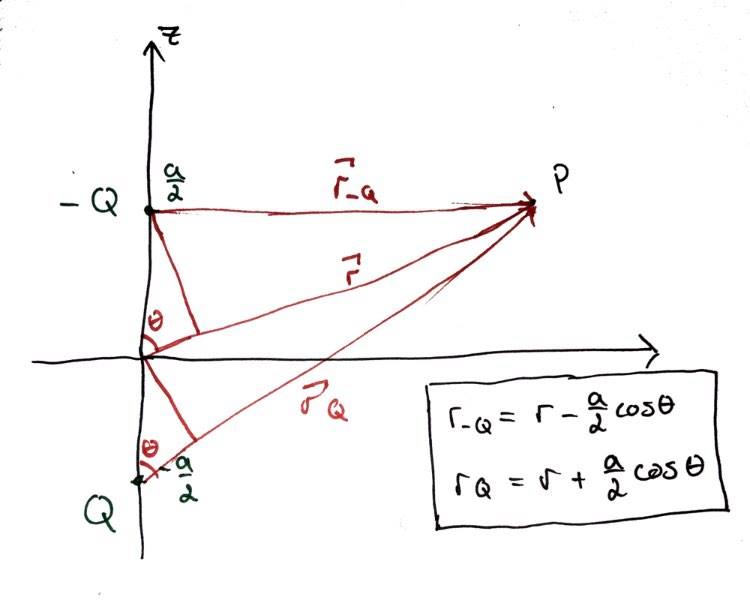 z
-Q
a/2
r⃗_-Q
P
r⃗
θ
r⃗_Q
θ
-a/2
Q
r_-Q = r - a/2 cosθ
r_Q = r + a/2 cosθ